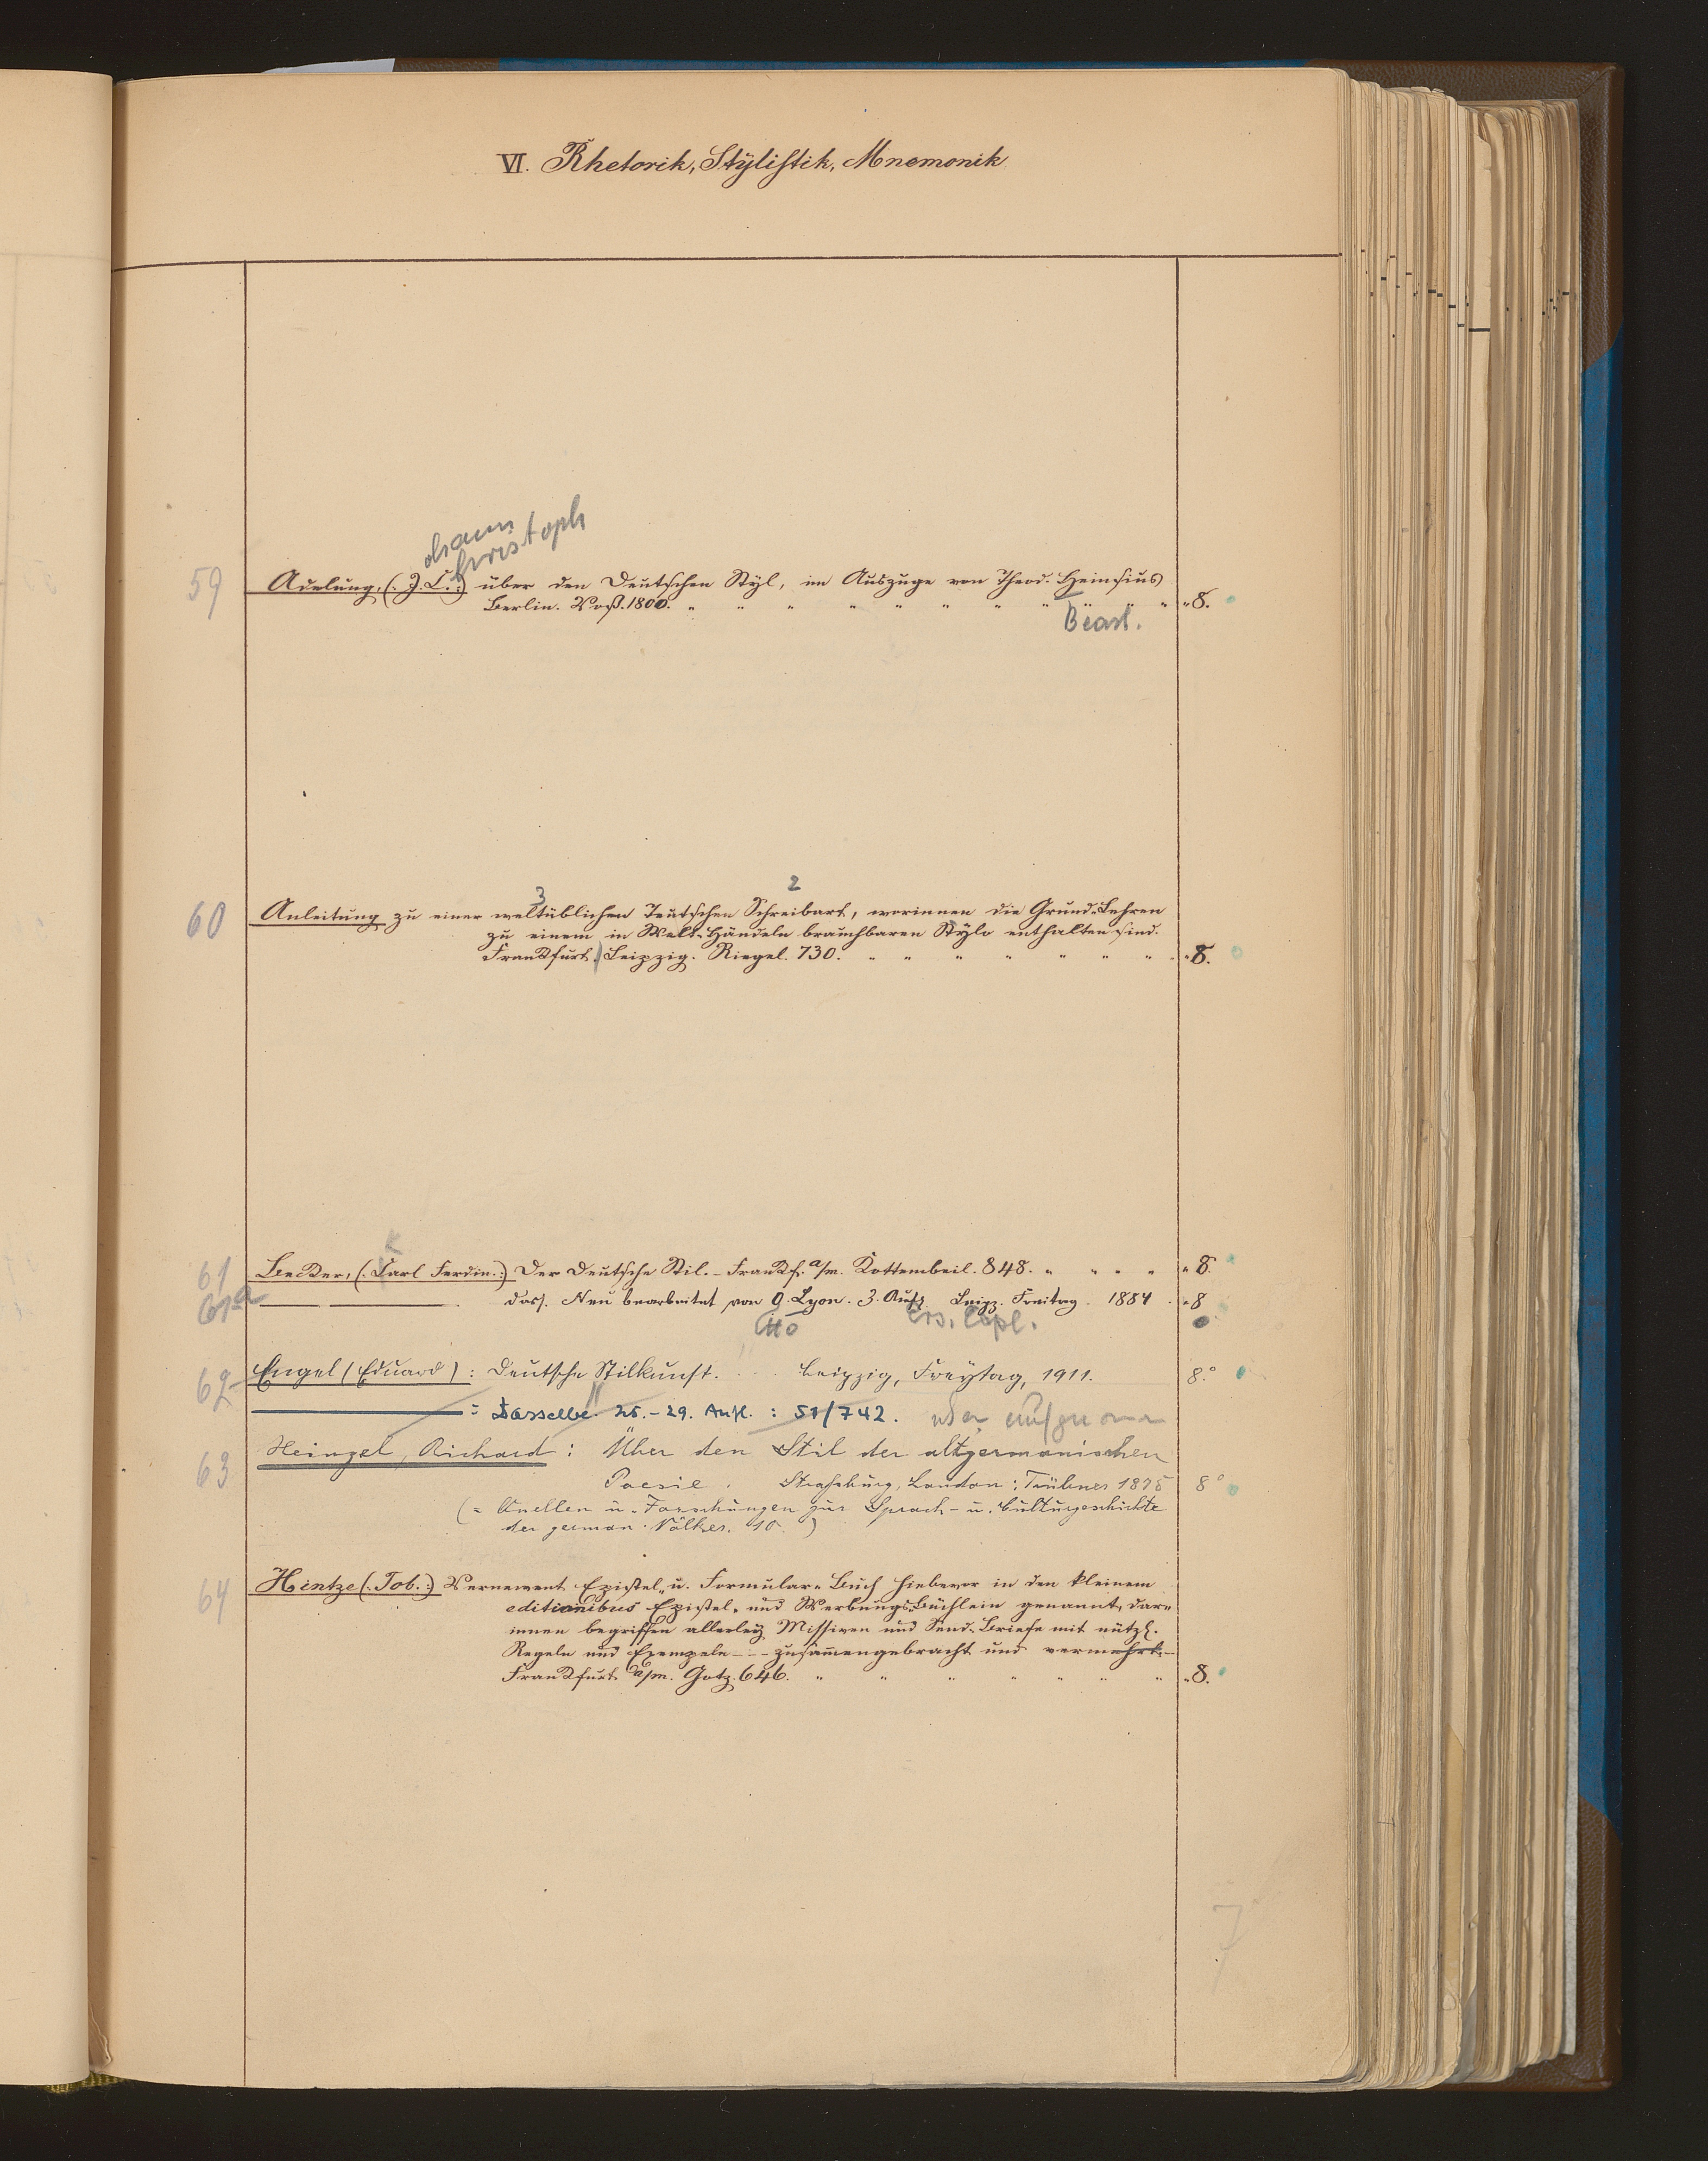 VI. Rhetorik, Stÿlistik, Mnemonik
ohann
hristoph
59 Adelung, (: J. C. :) über den Deutschen Stÿl, im Auszuge von Theod. Heinsius
Berlin. Voß. 1800. " " " " " " " " " " " 8.
Bearb.
3 2
60 Anleitung zu einer weltüblichen Teutschen Schreibart, worinnen die Grund-Lehren
zu einem in Welt-Händeln brauchbaren Stÿlo enthalten sind.
Frankfurt / Leipzig. Riegel. 730. " " " " " " " 8.
K
61 Becker, (: Carl Ferdin. :) Der Deutsche Stil. – Frankf. a/m. Kettembeil. 848. " " " " " 8.
61a ——— dass. Neu bearbeitet von O. Lyon. 3. Aufl. Leipz. Freitag. 1884 . " 8
tto Ers. Expl.
62 Engel (Eduard) : Deutsche Stilkunst. . . . Leipzig, Freytag, 1911. 8.°
——— : Dasselbe. 25.-29. Aufl. : 51/742.
63 Heinzel, Richard : Über den Stil der altgermanischen
Poesie . Strassburg, London : Trübner 1875 8°
(= Quellen u. Forschungen zur Sprach- u. Culturgeschichte
der german. Völker. 10. )
64 Hintze (: Tob. :) Vernewert Epistel- u. Formular-Buch hiebevor in den kleinem
editionibus Epistel- und Werbungs-Büchlein genannt, dar-
innen begriffen allerleÿ Missiven und Send-Briefe mit nützl.
Regeln und Exempeln - - - zusam̄engebracht und vermehrt. –
Frankfurt a/m. Götz. 646. " " " " " " " " 8.
7